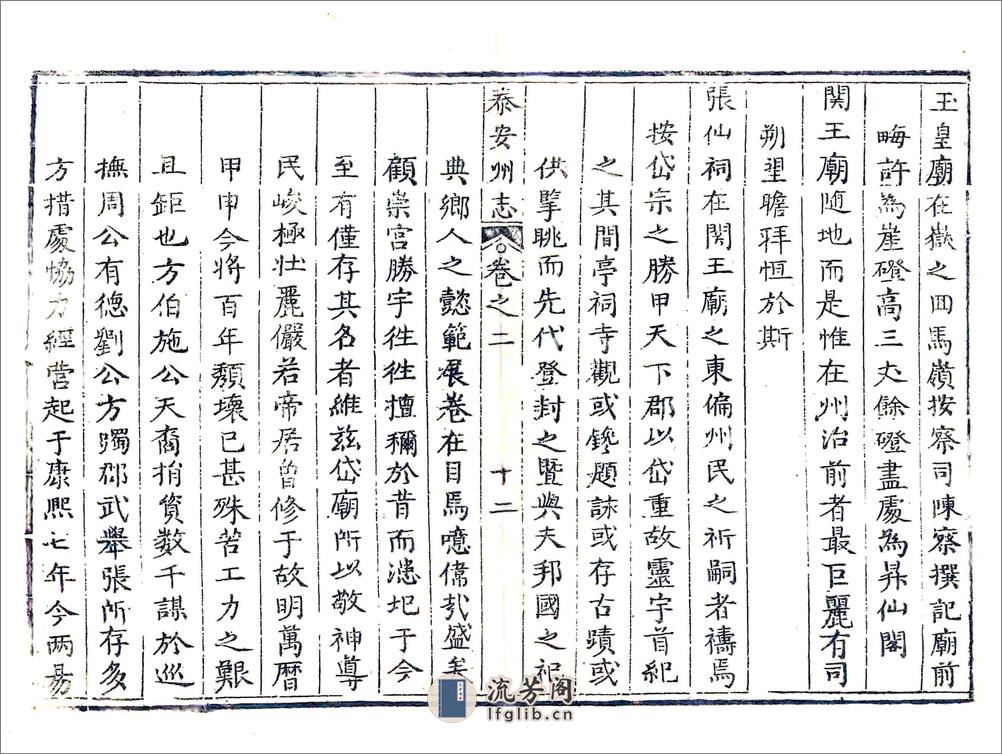 玉皇廟在嶽之回馬嶺按察司陳察撰記廟前
晦許為崖磴高三丈餘磴盡處為昇仙閣
関王廟随地而是惟在州治前者最巨麗有司
朔望瞻拜恒於斯
張仙祠在関王廟之東偏州民之祈嗣者禱焉
按岱宗之勝甲天下郡以岱重故靈宇首紀
之其間亭祠寺觀或鑱題詠或存古蹟或
供擎眺而先代登封之曁與夫邦國之祀
泰安州志 卷之二 十二
典鄉人之懿範展卷在目焉噫偉哉盛矣
顧崇宫勝宇徃徃擅㺯於昔而㴃圯于今
至有僅存其名者維玆岱廟所以敬神導
民峻極壮麗儼若帝居曾修于故明萬曆
甲申今將百年頽壊已甚殊苦工力之艱
且鉅也方伯施公天裔捐貲数千謀於巡
撫周公有德劉公方躅郡武舉張所存多
方措處恊力經営起于康熙七年今两昜
流芳阁
lfglib.cn